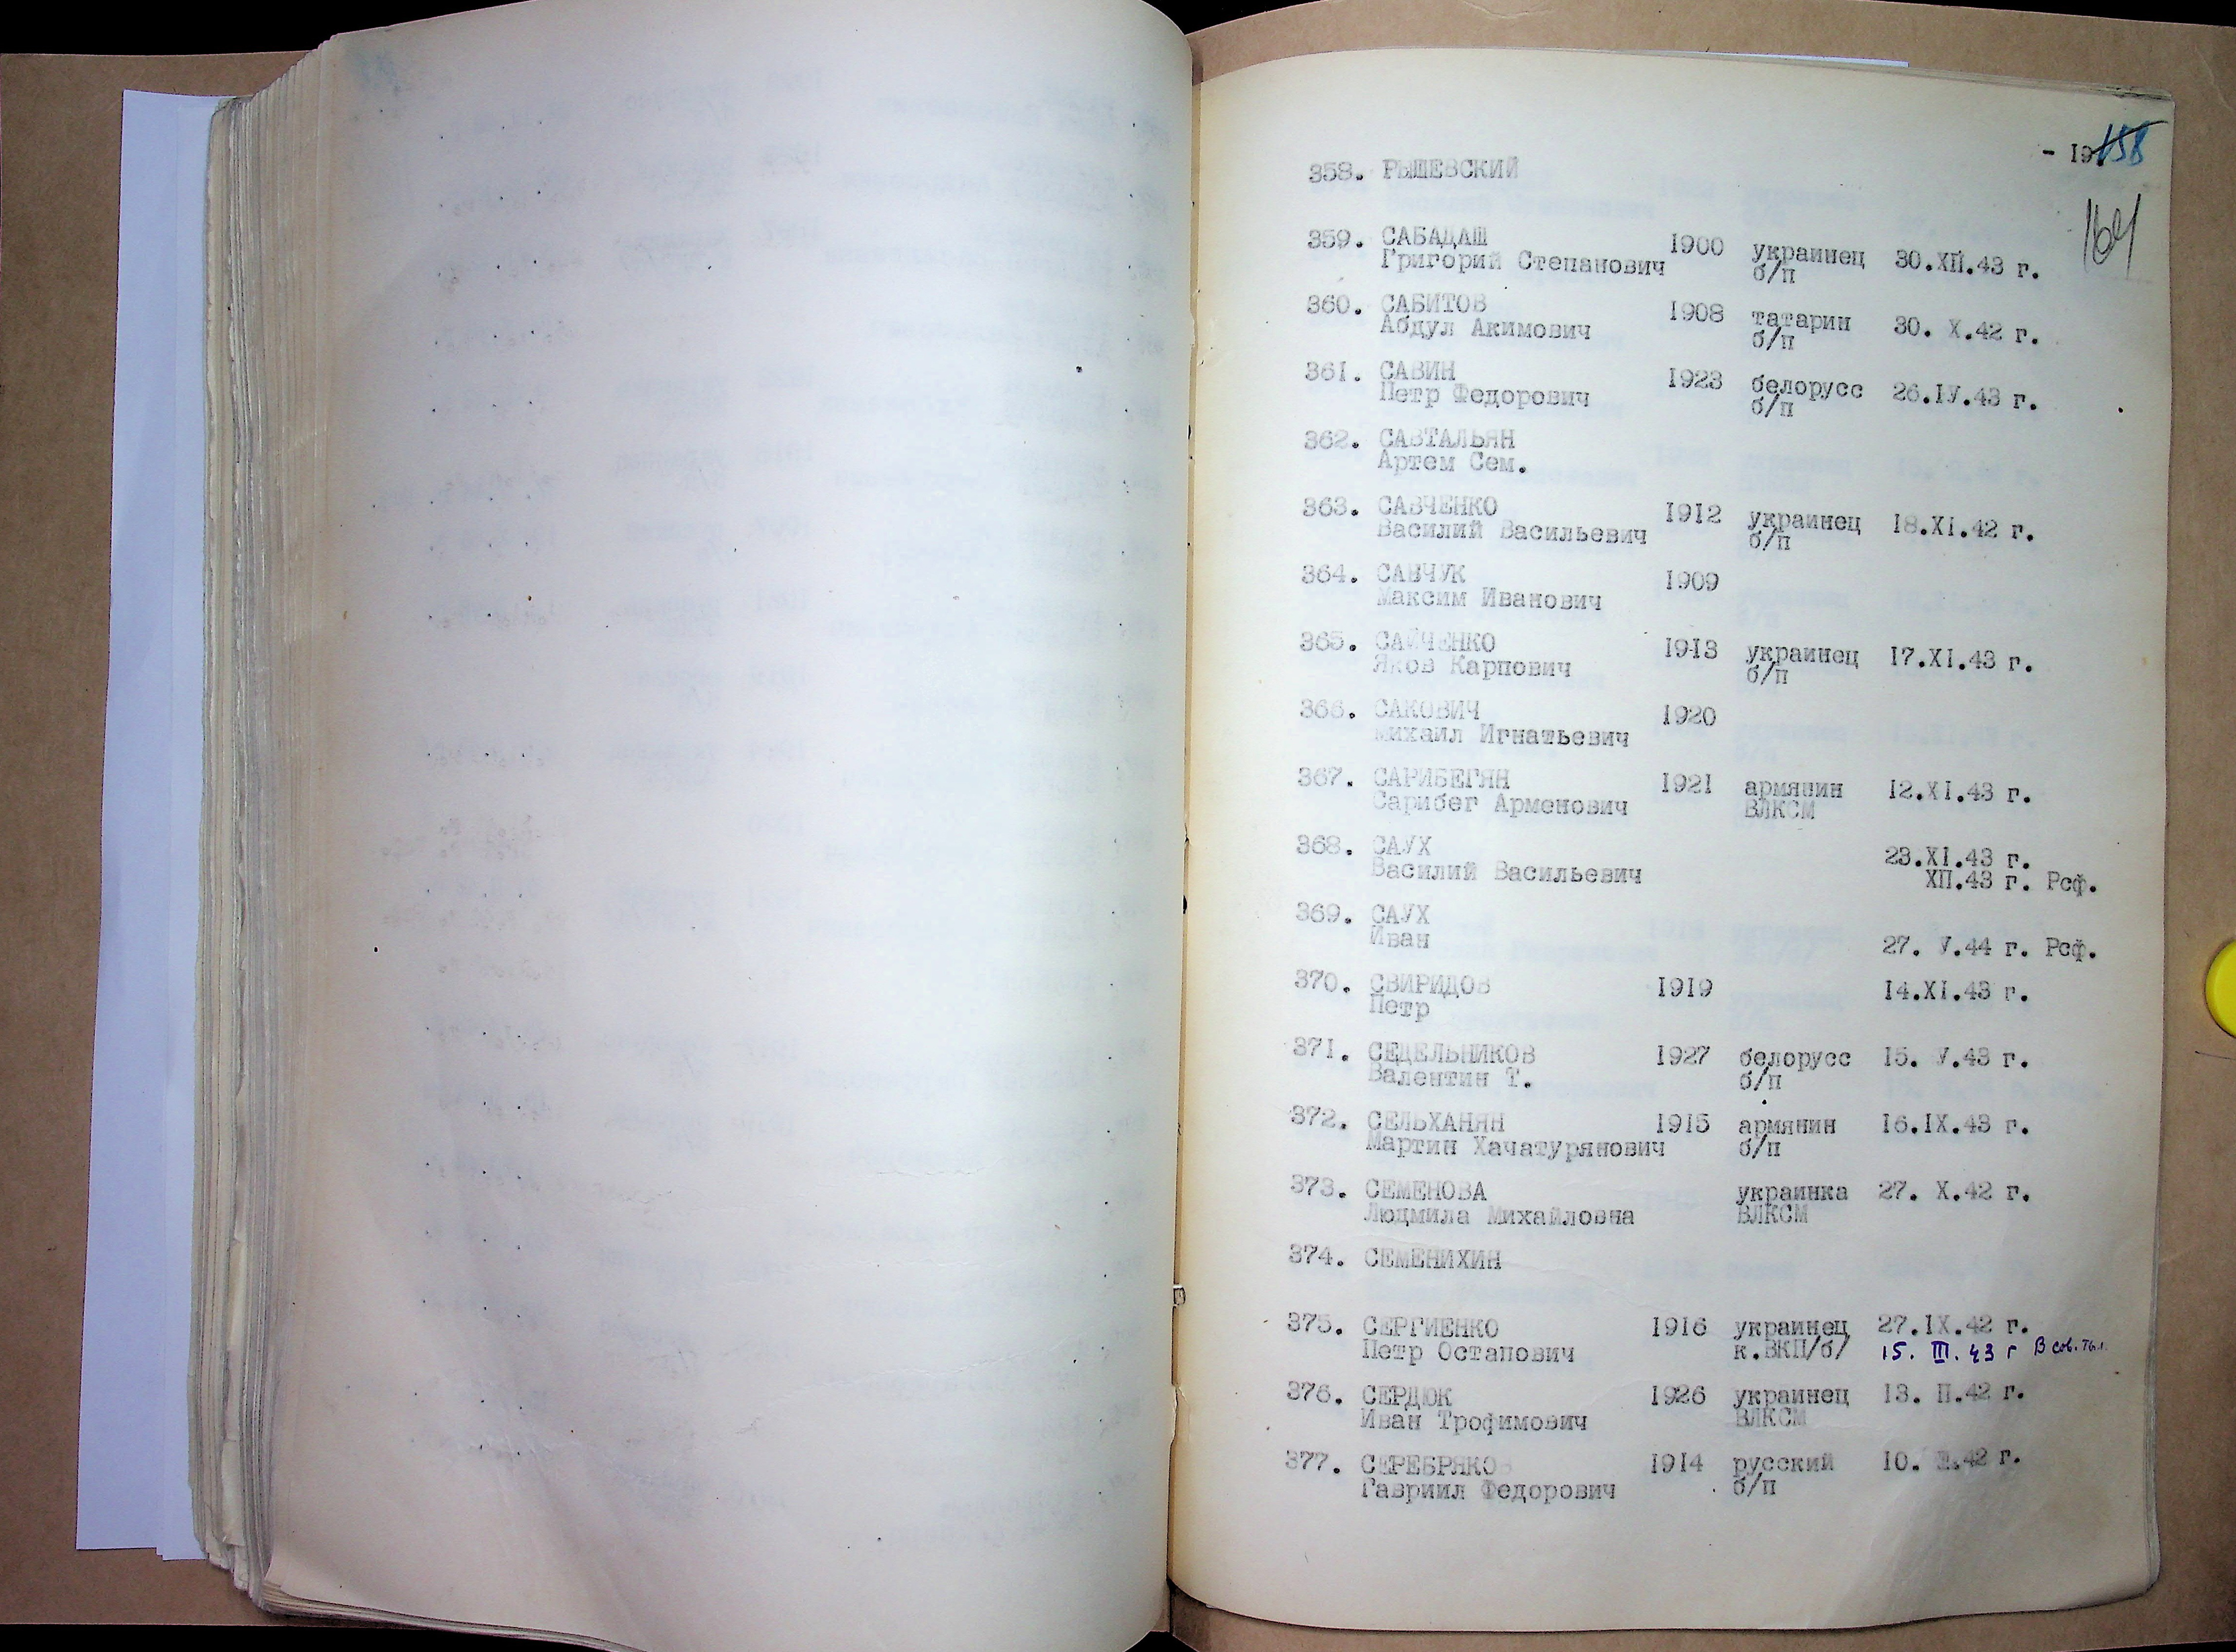 - 19.
158
164
358. РЫШЕВСКИЙ
359. САБАДАШ 1900 украинец 30.XII.43 г.
Григорий Степанович б/п
360. САБИТОВ 1908 татарин 30. X.42 г.
Абдул Акимович б/п
361. САВИН 1923 белорусс 26.IУ.43 г.
Петр Федорович б/п
362. САВТАЛЬЯН
Артем Сем.
363. САВЧЕНКО 1912 украинец 18.XI.42 г.
Василий Васильевич б/п
364. САВЧУК 1909
Максим Иванович
365. САЙЧЕНКО 1913 украинец 17.XI.43 г.
Яков Карпович б/п
366. САКОВИЧ 1920
Михаил Игнатьевич
367. САРИБЕГЯН 1921 армянин 12.XI.43 г.
Сарибег Арменович ВЛКСМ
368. САУХ 23.XI.43 г.
Василий Васильевич XII.43 г. Рсф.
369. САУХ
Иван 27. У.44 г. Рсф.
370. СВИРИДОВ 1919 14.XI.43 г.
Петр
371. СЕДЕЛЬНИКОВ 1927 белорусс 15. У.43 г.
Валентин Т. б/п
372. СЕЛЬХАНЯН 1915 армянин 16.IX.43 г.
Мартин Хачатурянович б/п
373. СЕМЕНОВА украинка 27. X.42 г.
Людмила Михайловна ВЛКСМ
374. СЕМЕНИХИН
375. СЕРГИЕНКО 1916 украинец 27.IX.42 г.
Петр Остапович к.ВКП/б/ 15. III. 43 г В сов. ты.
376. СЕРДЮК 1926 украинец 13. II.42 г.
Иван Трофимович ВЛКСМ
377. СЕРЕБРЯКОВ 1914 русский 10. 42 г.
Гавриил Федорович б/п